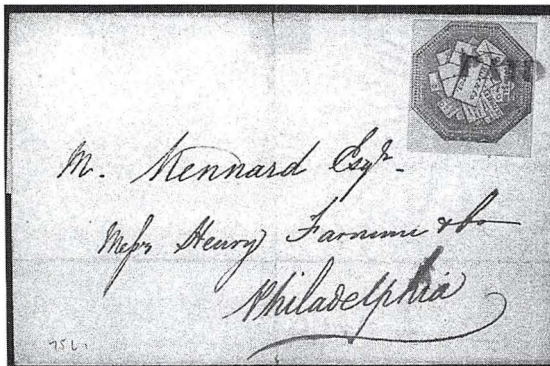 PAID
M. Kennard Esqr.
Messrs Henry Farnum & Co
Philadelphia
75L1